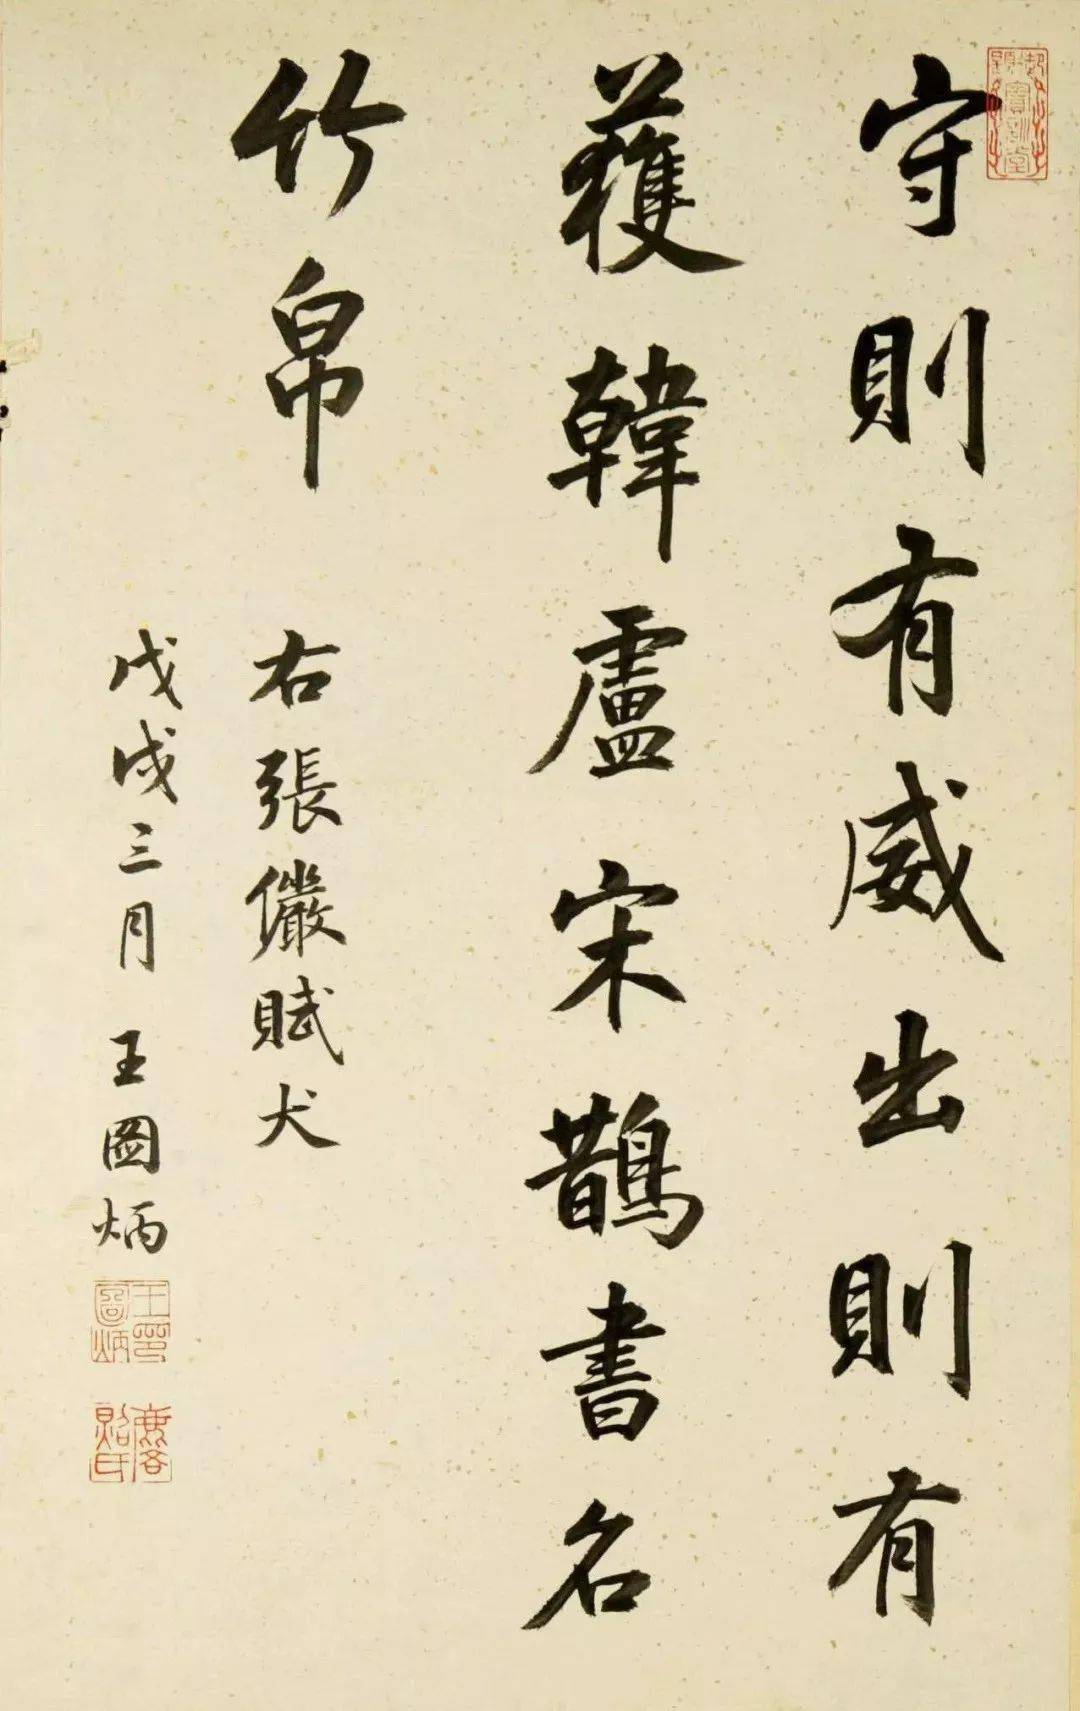 守則有威出則有
獲韓盧宋鵲書名
竹帛
右張儼賦犬
戊戌三月王圖炳
王印圖炳